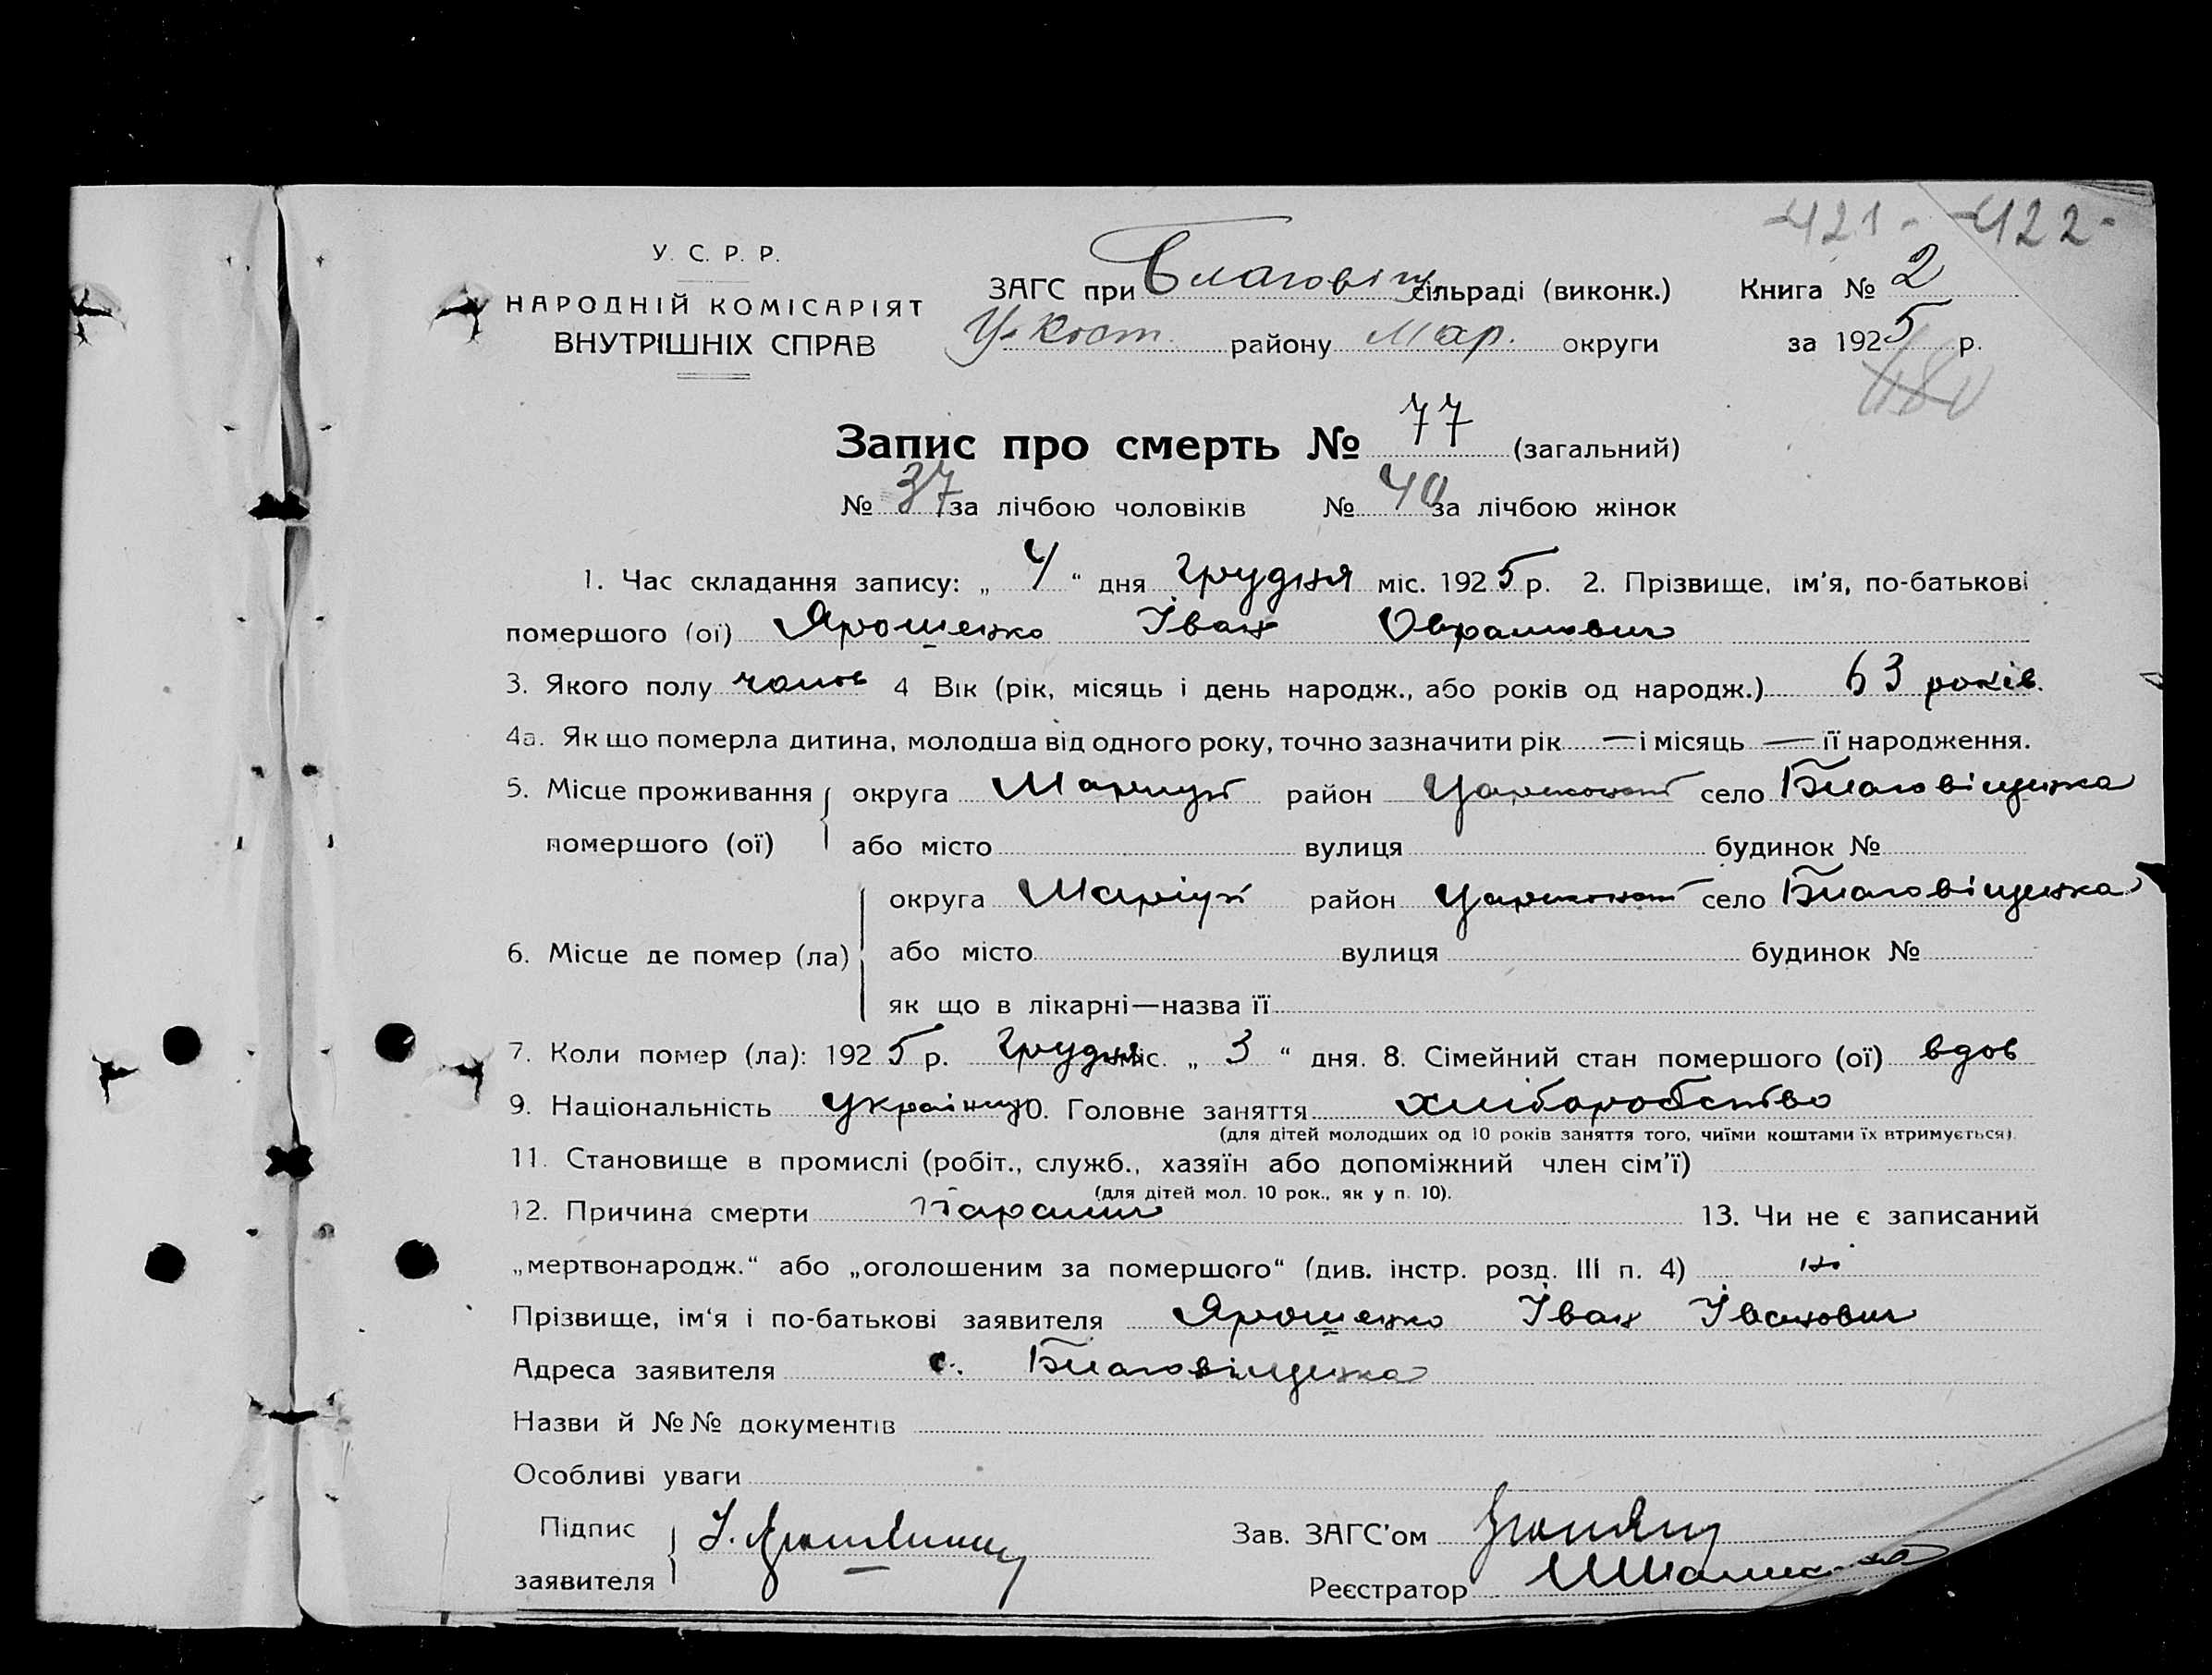 -421- -422-
У. С. Р. Р.
НАРОДНІЙ КОМІСАРІЯТ
ВНУТРІШНІХ СПРАВ
ЗАГС при Благовіщ. сільраді (виконк.) Книга № 2
Ц-Конст. району Мар. округи за 1925 р.
480
Запис про смерть № 77 (загальний)
№ 37 за лічбою чоловіків № 40 за лічбою жінок
1. Час складання запису: „ 4 “ дня грудня міс. 1925 р. 2. Прізвище, ім'я, по-батькові
помершого (ої) Ярошенко Іван Оврамович
3. Якого полу чолов 4 Вік (рік, місяць і день народж., або років од народж.) 63 років.
4а. Як що померла дитина, молодша від одного року, точно зазначити рік — і місяць — її народження.
5. Місце проживання округа Маріуп район Цареконст село Благовіщенка
помершого (ої) або місто вулиця будинок №
округа Маріуп район Цареконст село Благовіщенка
6. Місце де помер (ла) або місто вулиця будинок №
як що в лікарні—назва її
7. Коли помер (ла): 1925 р. Грудня міс. „ 3 “ дня. 8. Сімейний стан помершого (ої) вдов
9. Національність українц 10. Головне заняття хліборобство
(для дітей молодших од 10 років заняття того, чиїми коштами їх втримується).
11. Становище в промислі (робіт., служб., хазяїн або допоміжний член сім'ї)
(для дітей мол. 10 рок., як у п. 10).
12. Причина смерти Параліч 13. Чи не є записаний
„мертвонародж.“ або „оголошеним за помершого“ (див. інстр. розд. III п. 4) ні
Прізвище, ім'я і по-батькові заявителя Ярошенко Іван Іванович
Адреса заявителя с. Благовіщенка
Назви й №№ документів
Особливі уваги
Підпис
заявителя
Зав. ЗАГС'ом
Реєстратор